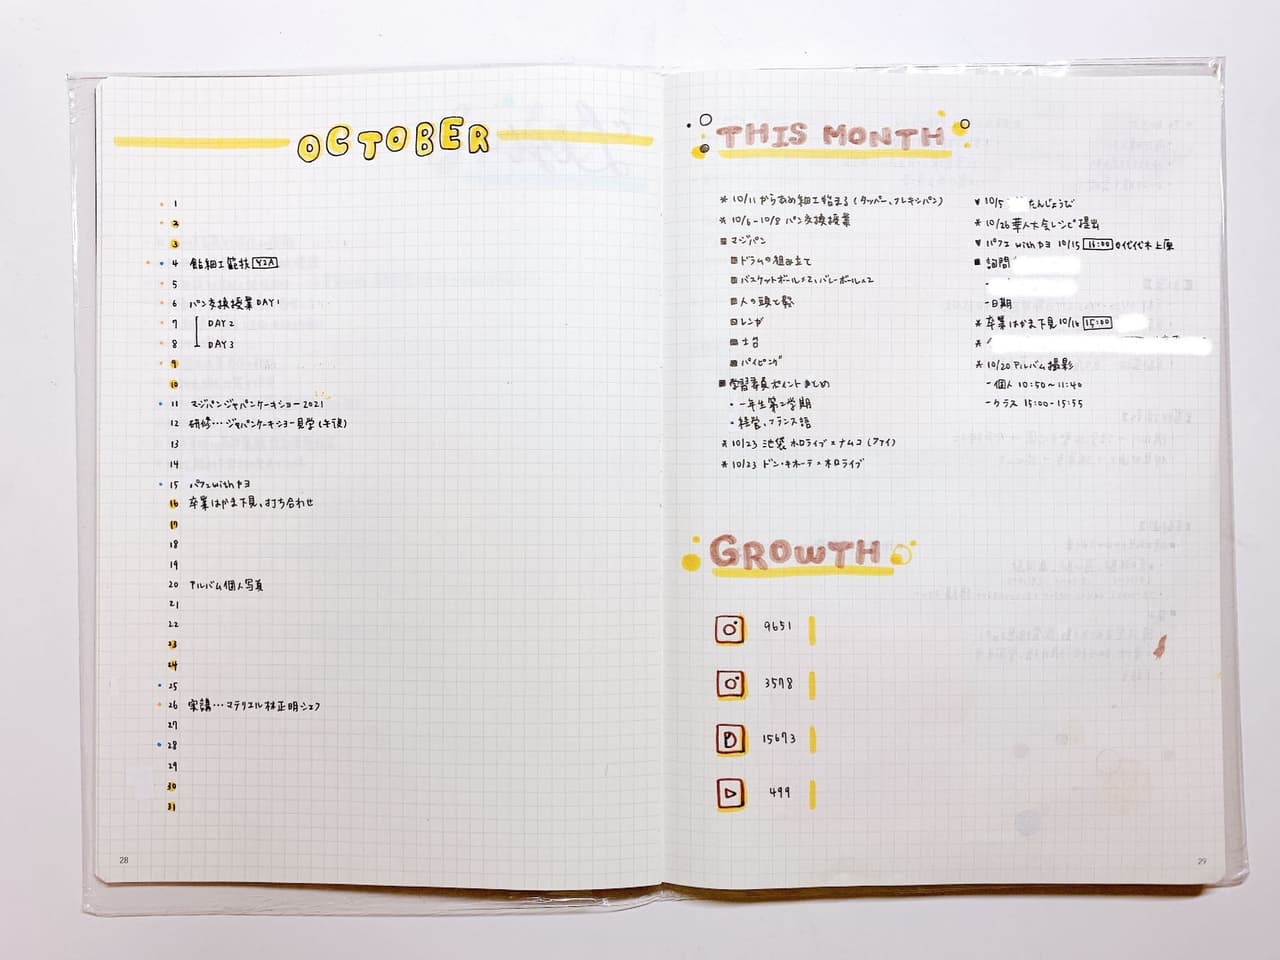 OCTOBER
1
2
3
4 飴細工範技 Y2A
5
6 パン交換授業 DAY1
7 DAY2
8 DAY3
9
10
11 マジパンジャパンケーキショー2021
12 研修…ジャパンケーキショー見学(午後)
13
14
15 パフェwithチヨ
16 卒業はかま下見、打ち合わせ
17
18
19
20 アルバム個人写真
21
22
23
24
25
26 実講…マテリエル林正明シェフ
27
28
29
30
31
28
THIS MONTH
* 10/11からあめ細工始まる(タッパー、フレキシパン)
* 10/6-10/8 パン交換授業
マジパン
ドラムの組み立て
バスケットボール×2、バレーボール×2
人の頭と髪
レンガ
土台
パイピング
学習専員ポイントまとめ
・一年生第二学期
・経営、フランス語
* 10/23 池袋 ホロライブ×ナムコ(アァイ)
* 10/23 ドン・キホーテ×ホロライブ
10/5 たんじょうび
* 10/26 華人大会レシピ提出
パフェ with チヨ 10/15 16:00 @代代木上原
詢問
-
-日期
* 卒業はかま下見 10/16 15:00
*
* 10/20 アルバム撮影
-個人 10:50~11:40
-クラス 15:00-15:55
GROWTH
9651
3578
B 15673
499
29